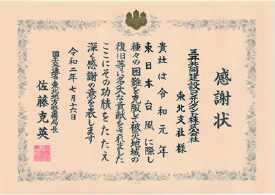 感謝状
三井共同建設コンサルタント株式会社
東北支社様
貴社は令和元年
東日本台風に際し
種々の困難を克服して被災地域の
復旧等に多大な貢献をされました
ここにその功績をたたえ
深く感謝の意を表します
令和二年七月十六日
国土交通省東北地方整備局長
佐藤克英